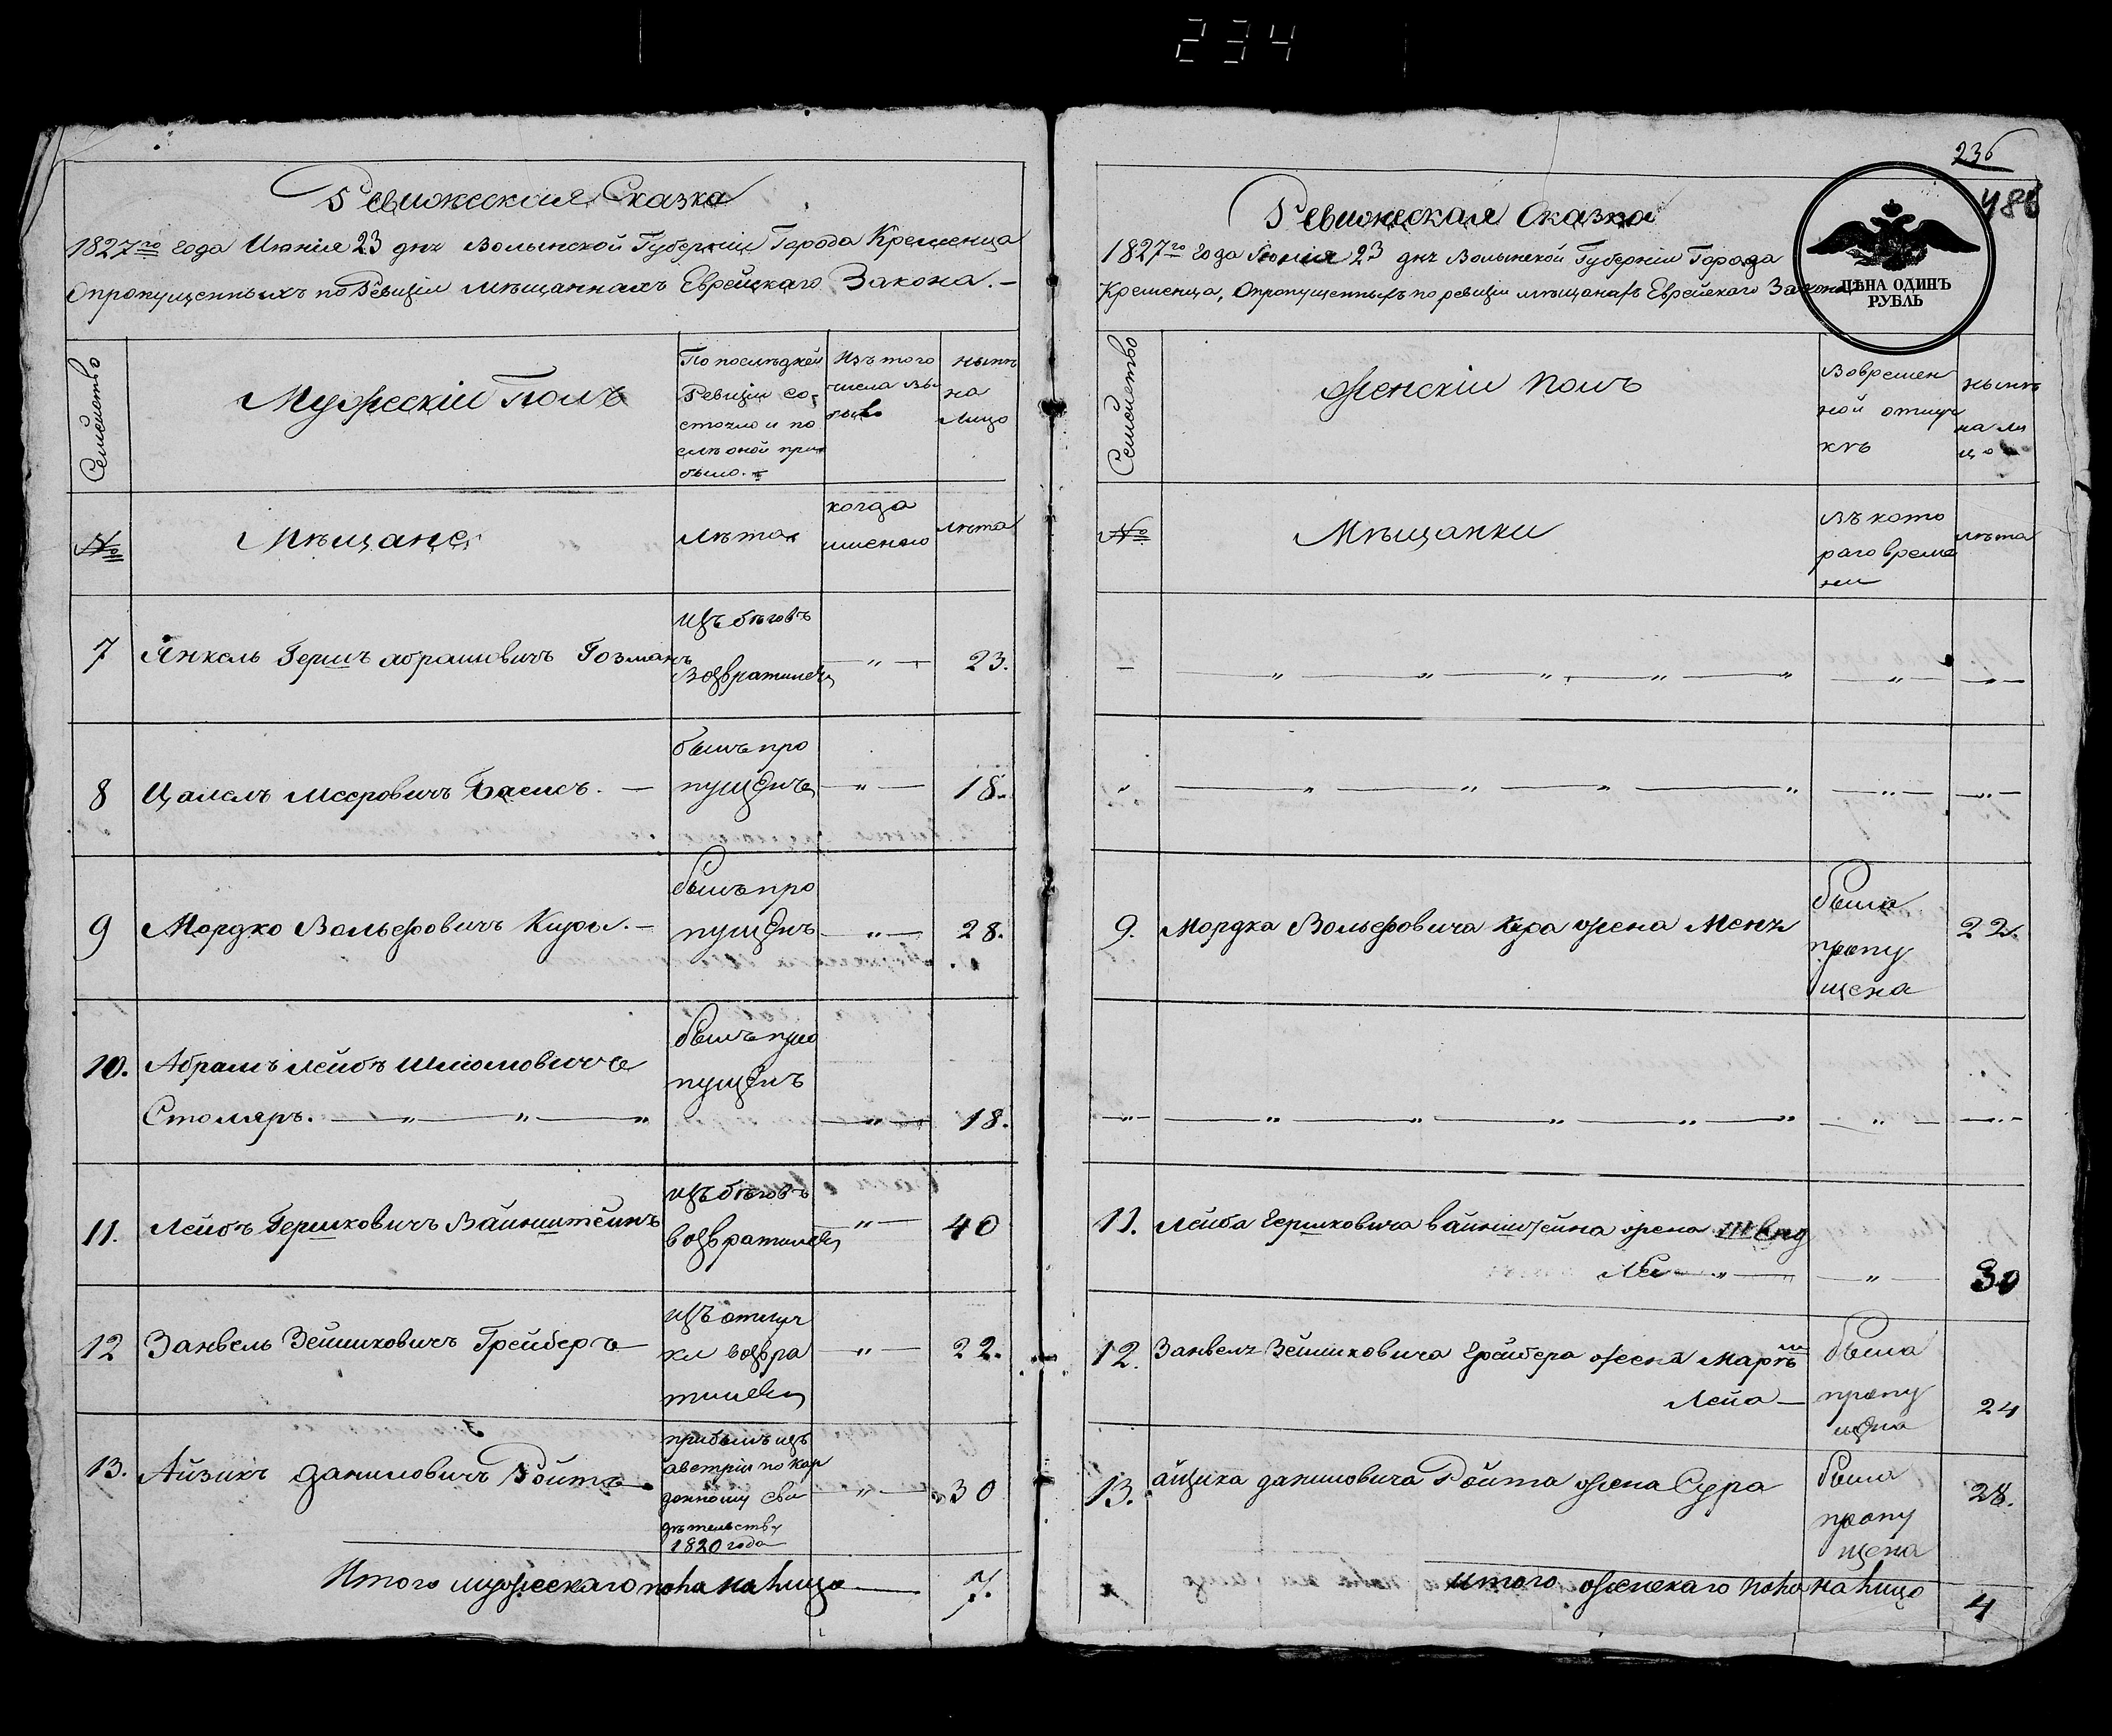 234
Ревижская Сказка
1827го года Июнія 23 дня Волынской Губерніи Города Кременца
Опропущенныхъ по Ревизіи мѣщаннахъ Еврейскаго Закона.
Семейство
Мужескій Полъ
По послѣдней
Ревизіи со-
стояло и по
слѣ оной при
было.
Изъ того
числа вы
было
нынѣ
на
Лицо
№
Мѣщане
Лѣта
когда
именно
лѣта
7 Янкель Гершъ абрамовичъ Гозманъ
изъ бѣговъ
возвратился
23.
8 Цалель Мееровичъ
былъ про
пущенъ
18.
9 Мордко Вольфовичъ
былъ про
пущенъ
28.
10. Абрамъ Лейбъ Шліомовичъ
Столяръ.
былъ про
пущенъ
18.
11. Лейбъ Гершковичъ Вайнштейнъ
изъ бѣговъ
возвратился
40
12 Занвель Зейликовичъ Грейберъ
изъ отлуч
ки возвра
тился
22.
13. Айзикъ Даниловичъ Ройтъ
прибылъ изъ
австріи по кор
донному сви
дѣтельству
1820 года
30
Итого мужескаго пола на лицо 7.
236
486
ЦѢНА ОДИНЪ
РУБЛЬ
Ревижская Сказка
1827го года Іюнія 23 дня Волынской Губерніи Города
Кременца, Опропущенныхъ по ревизіи мѣщанахъ Еврейскаго Закона
Семейство
Женскій полъ
Вовремен
ной отлуч
кѣ
нынѣ
на ли
цо
№
Мѣщанки
въ кото
раго време
ни
лѣта
9. Мордка Вольфовича Кура жена Меня
была
пропу
щена
22.
11. Лейба Гершковича вайнштейна жена
30
12. Занвеля Зейликовича Грейбера жена
Лея
была
пропу
щена
24
13. айзика даниловича Ройта жена Сура
была
пропу
щена
28.
итого женскаго пола на лицо 4